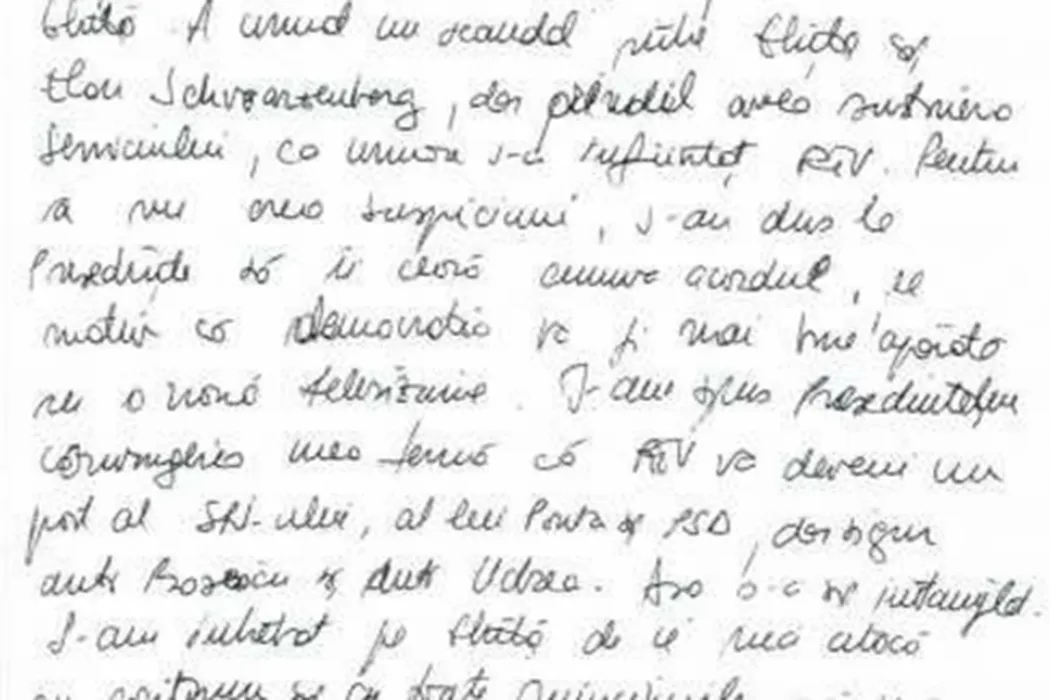 Ghiță. A urmat un scandal între Ghiță și
Elan Schwarzenberg, dar pârdalnicul avea susținerea
Serviciului, ca urmare s-a înființat RTV. Pentru
a nu crea suspiciuni, s-au dus la
Președinte să îi ceară cumva acordul, pe
motiv că democrația va fi mai bine apărată
cu o nouă televiziune. I-am spus Președintelui
convingerea mea fermă că RTV va deveni un
post al SRI-ului, al lui Ponta și PSD, desigur
anti Băsescu și anti Udrea. Așa s-a și întâmplat.
I-am întrebat pe Ghiță de ce mă atacă